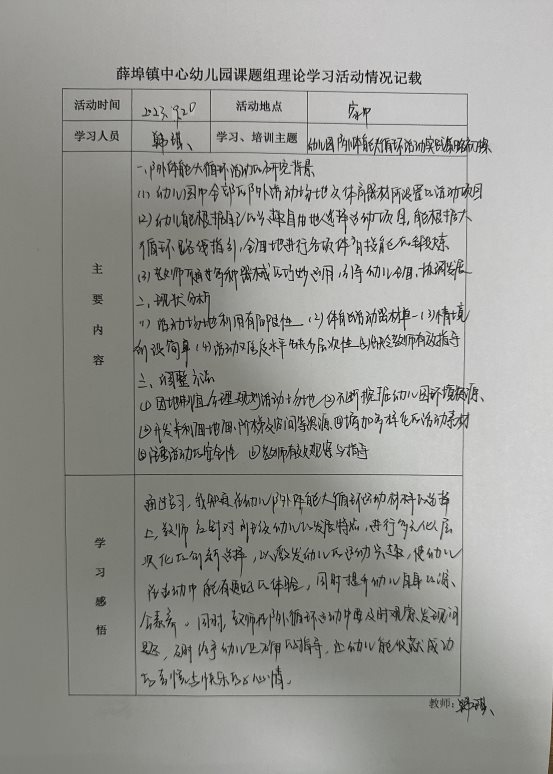 薛埠镇中心幼儿园课题组理论学习活动情况记载
活动时间 2023.9.20 活动地点
学习人员 韩琪 学习、培训主题 幼儿园户外体能大循环活动实践策略初探
主要内容
一、户外体能大循环活动的研究背景
(1) 幼儿园中全部的户外活动场地及体育器材所设置的活动项目
(2) 幼儿能根据自己的兴趣自由地选择运动项目,能根据大
循环路线指引,全面地进行各项体育技能的锻炼
(3) 教师通过各种器械的巧妙运用,引导幼儿全面、协调发展
二、现状分析
(1) 活动场地利用有局限性 (2) 体育活动器材单一 (3) 情境
创设简单 (4) 活动发展水平缺少层次性 (5) 缺乏教师有效指导
三、调整方法
(1) 因地制宜,合理规划活动场地 (2) 不断挖掘幼儿园环境资源、
(3) 开发和利用地面、阶梯及房间等资源 (4) 增加多样化的活动素材
(5) 注重活动的安全性 (6) 教师有效观察与指导
学习感悟
通过学习,我明白在幼儿户外体能大循环活动材料的选择
上,教师应针对不同年级幼儿的发展特点,进行多元化、层
次化的创新选择,以激发幼儿的运动兴趣,使幼儿
在活动中能有更好的体验,同时提升幼儿自身的综
合素养。同时,教师在户外循环活动中要及时观察、发现问
题,及时给予幼儿正确的指导,让幼儿能收获成功
的喜悦与快乐的心情。
教师:韩琪